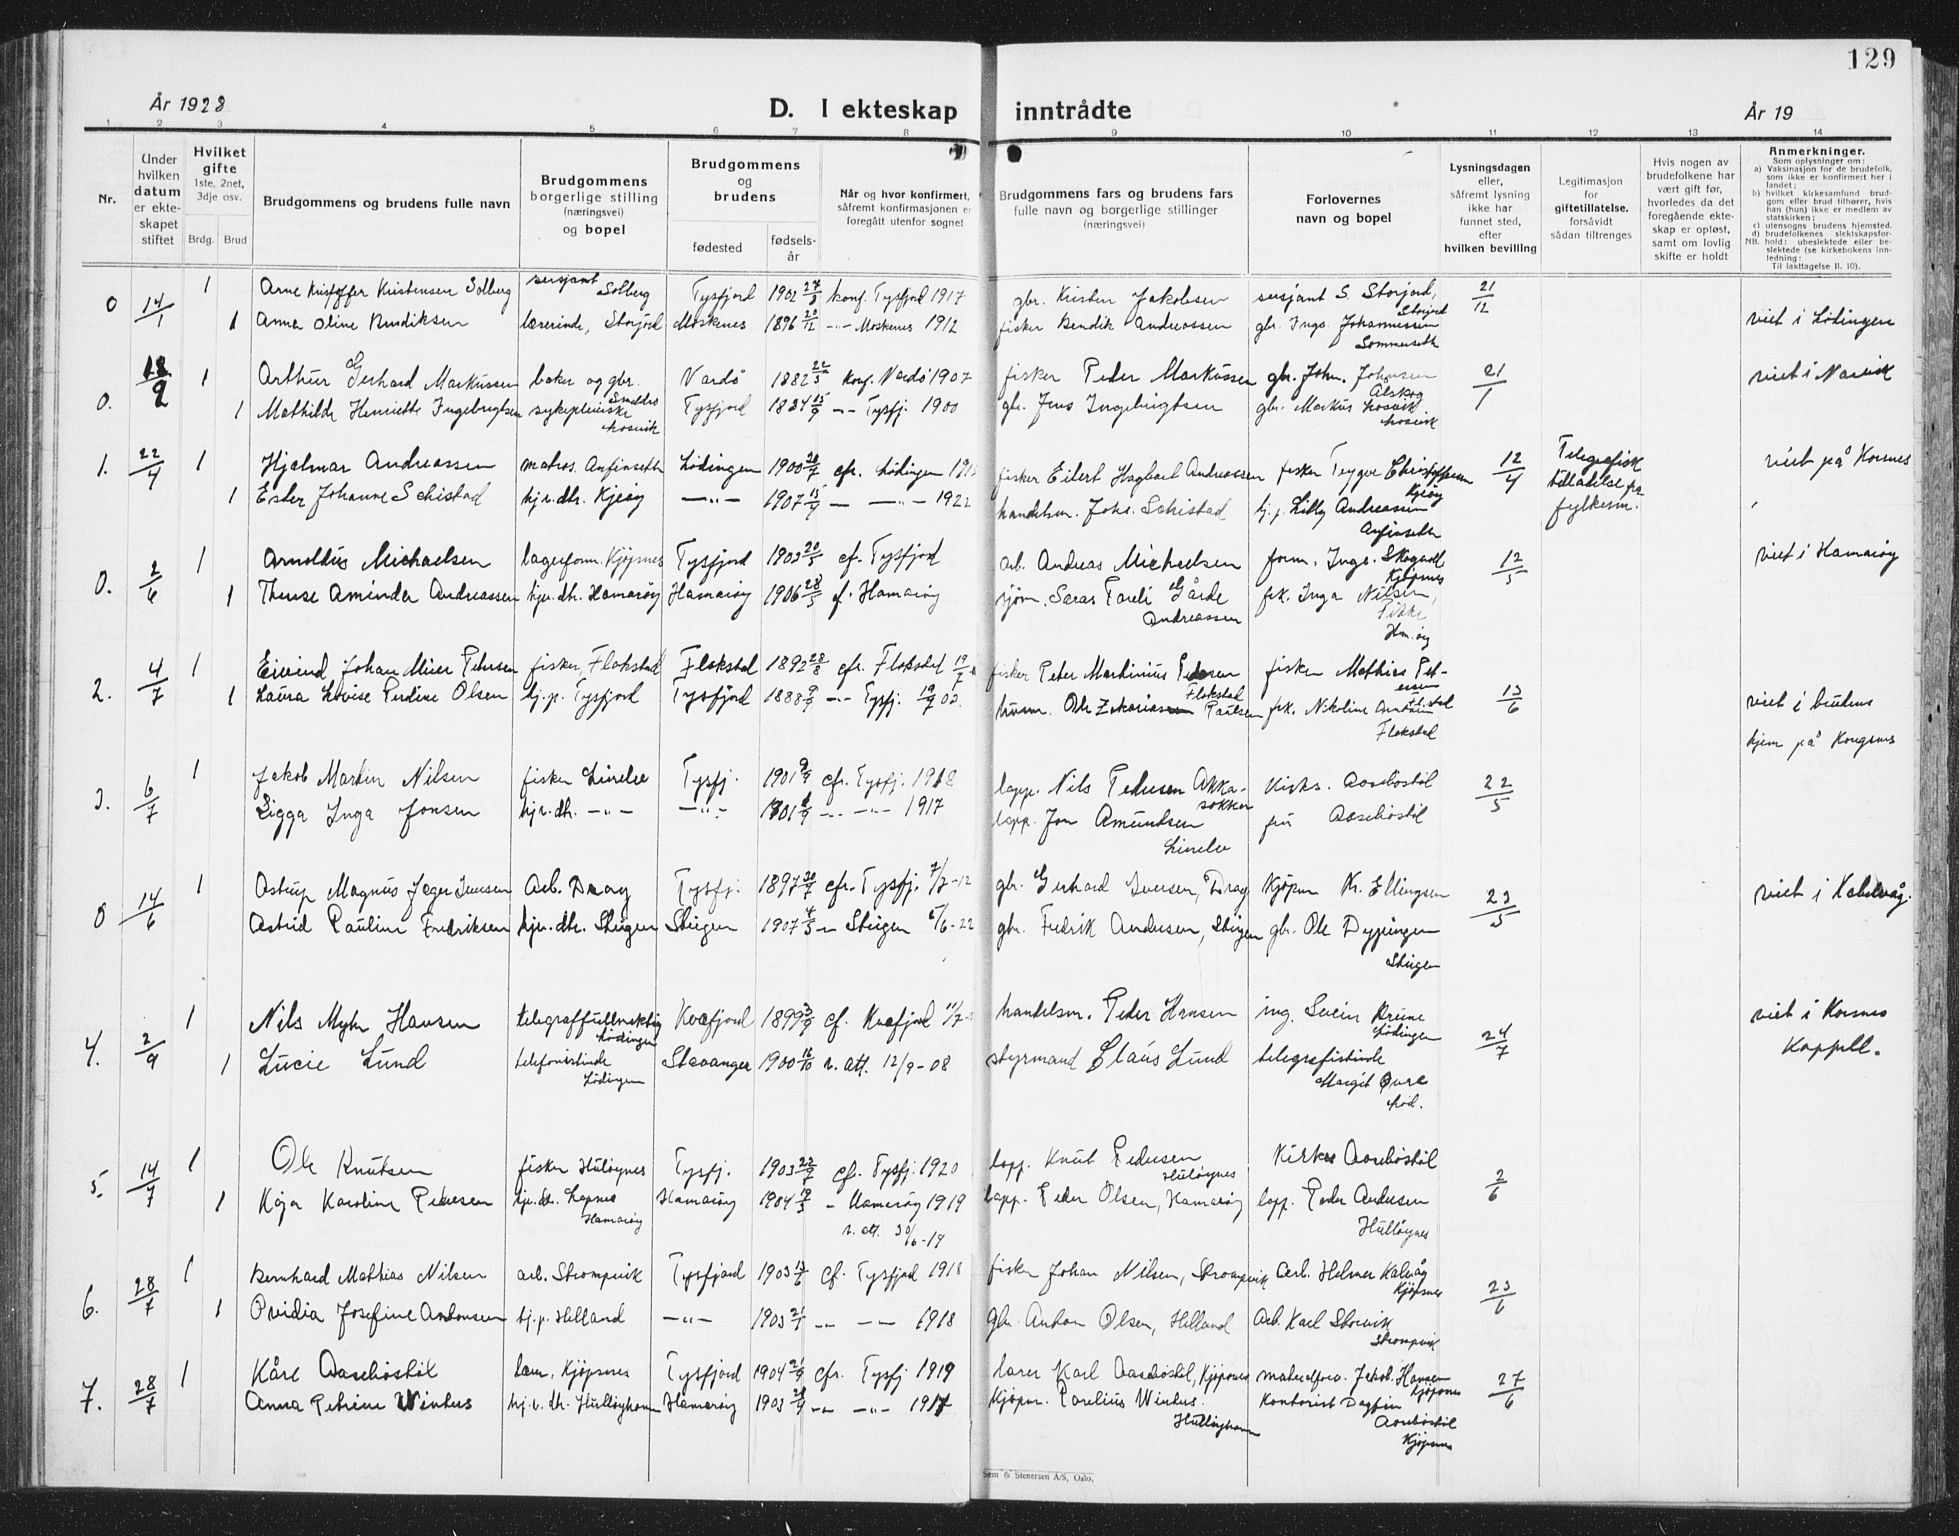 129
År 1928
D. I ekteskap inntrådte
År 19
1 2 3 4 5 6 7 8 9 10 11 12 13 14
Nr.
Under hvilken datum er ekteskapet stiftet
Hvilket gifte
1ste, 2net, 3dje osv.
Brdg. Brud
Brudgommens og brudens fulle navn
Brudgommens borgerlige stilling (næringsvei) og bopel
Brudgommens og brudens
fødested
fødselsår
Når og hvor konfirmert, såfremt konfirmasjonen er foregått utenfor sognet
Brudgommens fars og brudens fars fulle navn og borgerlige stillinger (næringsvei)
Forlovernes navn og bopel
Lysningsdagen eller, såfremt lysning ikke har funnet sted, efter hvilken bevilling
Legitimasjon for giftetillatelse, forsåvidt sådan tiltrenges
Hvis nogen av brudefolkene har vært gift før, hvorledes da det foregående ekteskap er opløst, samt om lovlig skifte er holdt
Anmerkninger.
Som oplysninger om:
a) Vaksinasjon for de brudefolk, som ikke er konfirmert her i landet;
b) hvilket kirkesamfund brudgom eller brud tilhører, hvis han (hun) ikke er medlem av statskirken;
c) utensogns brudens hjemsted.
d) brudefolkenes slektskapsforhold: ubeslektede eller beslektede (se kirkebokens innledning:
NB. Til iakttagelse II. 10).
0 14/1 1 Arne Kristoffer Kristensen Solberg sersjant Solberg Tysfjord 1902 27/8 konf. Tysfjord 1917 gbr. Kristen Jakobsen sersjant S. Storjord, Storjord 21/12
1 Anna Oline Bendiksen lærerinde, Storjord Moskenes 1896 20/12 -"- Moskenes 1912 fisker Bendik Andreassen gbr. Inge. Johannessen Sommerseth viet i Lødingen
0. 18/2 1 Arthur Gerhard Markussen baker og gbr. Vardø 1882 22/5 konf. Vardø 1907 fisker Peder Markussen gbr. John. Johansen 21/1 viet i Narvik
1 Mathilde Henriette Ingebrigtsen sykepleierske Tysfjord 1884 15/9 -"- Tysfj. 1900 gbr. Jens Ingebrigtsen gbr. Markus
1. 22/4 1 Hjalmar Andreassen matros. Anfinseth Lødingen 1900 20/7 cfr. Lødingen fisker Eilert Hagbart Andreassen fisker Trygve Christoffersen Kjeøy 12/4 Telegrafisk tillatelse fra fylkesm. viet på Korsnes
1 Ester Johanne Schistad hj.v. dtr. Kjeøy -"- 1907 15/9 - -"- 1922 handelsm. Johs. Schistad hj. p. Lilly Andreassen Anfinseth
0. 2/6 1 Arnoldus Michaelsen lagerform. Kjøpsnes Tysfjord 1903 20/5 cf. Tysfjord arb. Andreas Michaelsen form. Inge. Skogvoll Kjøpsnes 12/5 viet i Hamarøy
1 Therese Aminda Andreassen hjv. dtr. Hamarøy Hamarøy 1906 28/5 cf. Hamarøy sjøm. Gårde Andreassen frk. Inga Nilsen,
2. 4/7 1 Eivind Johan Meier Petersen fisker, Flakstad Flakstad 1892 28/8 cfr. Flakstad fisker Peter Martinius Petersen Flakstad fisker Mathias Petersen 13/6
1 Laura Lovise Perdine Olsen hj. p. Tysfjord Tysfjord 1888 9/9 -"- Tysfj. 19/7 03. husm. Ole Zakariassen Paulsen frk. Nikoline Flakstad viet i brudens hjem på Kongsnes
3. 6/7 1 Jakob Martin Nilsen fisker Tysfj. 1901 9/9 cfr. Tysfj. 1918 lapp. Nils Pedersen Akkasokken Kirks. Aasebøstøl 22/5
Sigga Inga Jonsen hj.v. dtr. -"- -"- 1901 -"- 1917 lapp. Jon Amundsen fru Aasebøstøl
0 14/6 1 Astrup Magnus Jæger Iversen Arb. Drag Tysfj. 1897 20/7 cfr. Tysfj. 7/7-12 gbr. Gerhard Iversen, Drag Kjøpm Kr. Ellingsen 23/5 viet i Kabelvåg.
Astrid Pauline Fredriksen hjv. dtr. Steigen Steigen 1907 4/5 -"- Steigen 5/6-22 gbr. Fredrik Andersen, Steigen gbr. Ole Dypingen Steigen
4. 2/9 1 Nils Myhr Hansen telegraffullmektig Lødingen Kvæfjord 1899 3/9 cf. Kvæfjord 11/7 handelsm. Peder Hansen ing. Svein Lødingen 24/7 viet i Korsnes Kapell.
1 Lucie Lund telefonistinde Lødingen Stavanger 1900 16/10 v. att. 12/9-08 styrmand Claus Lund telegrafistinde Margit Lød.
5. 14/7 1 Ole Knutsen fisker Huløynes Tysfj. 1903 22/7 cf. Tysfj. 1920 lapp. Knut Pedersen Huløynes Kirkes Aasebøstøl 2/6
1 Kaja Karoline Pedersen hjv. dtr. Hamarøy Hamarøy 1904 19/3 - Hamarøy 1919 v. att. 30/6-19 lapp. Peder Olsen, Hamarøy lapp. Peder Andersen Hulløynes
6. 28/7 1 Bernhard Mathias Nilsen arb. Strompvik Tysfjord 1903 13/6 cf. Tysfjord 1918 fisker Johan Nilsen, Strompvik Arb. Helmer Kalvåg Kjøpsnes 23/6
1 Ovidia Josefine Antonsen hj. p. Helland -"- 1903 21/1 -"- -"- 1918 Gbr. Anton Olsen, Helland Arb. Karl Storvik Strompvik
7. 28/7 1 Kåre Aasebøstøl lær., Kjøpsnes Tysfjord 1904 21/9 cfr. Tysfj 1919 lærer Karl Aasebøstøl, Kjøpsnes Jakob. Hansen Kjøpsnes 27/6
Anna Petrine Winther hj.v. dtr. Hulløyhamn Hamarøy 1903 28/9 -"- -"- 1917 Kjøpm. Parelius Winther. Hulløyhamn Kontorist Dagfin Aasebøstøl Kjøpsnes
Sem & Stenersen A/S, Oslo.